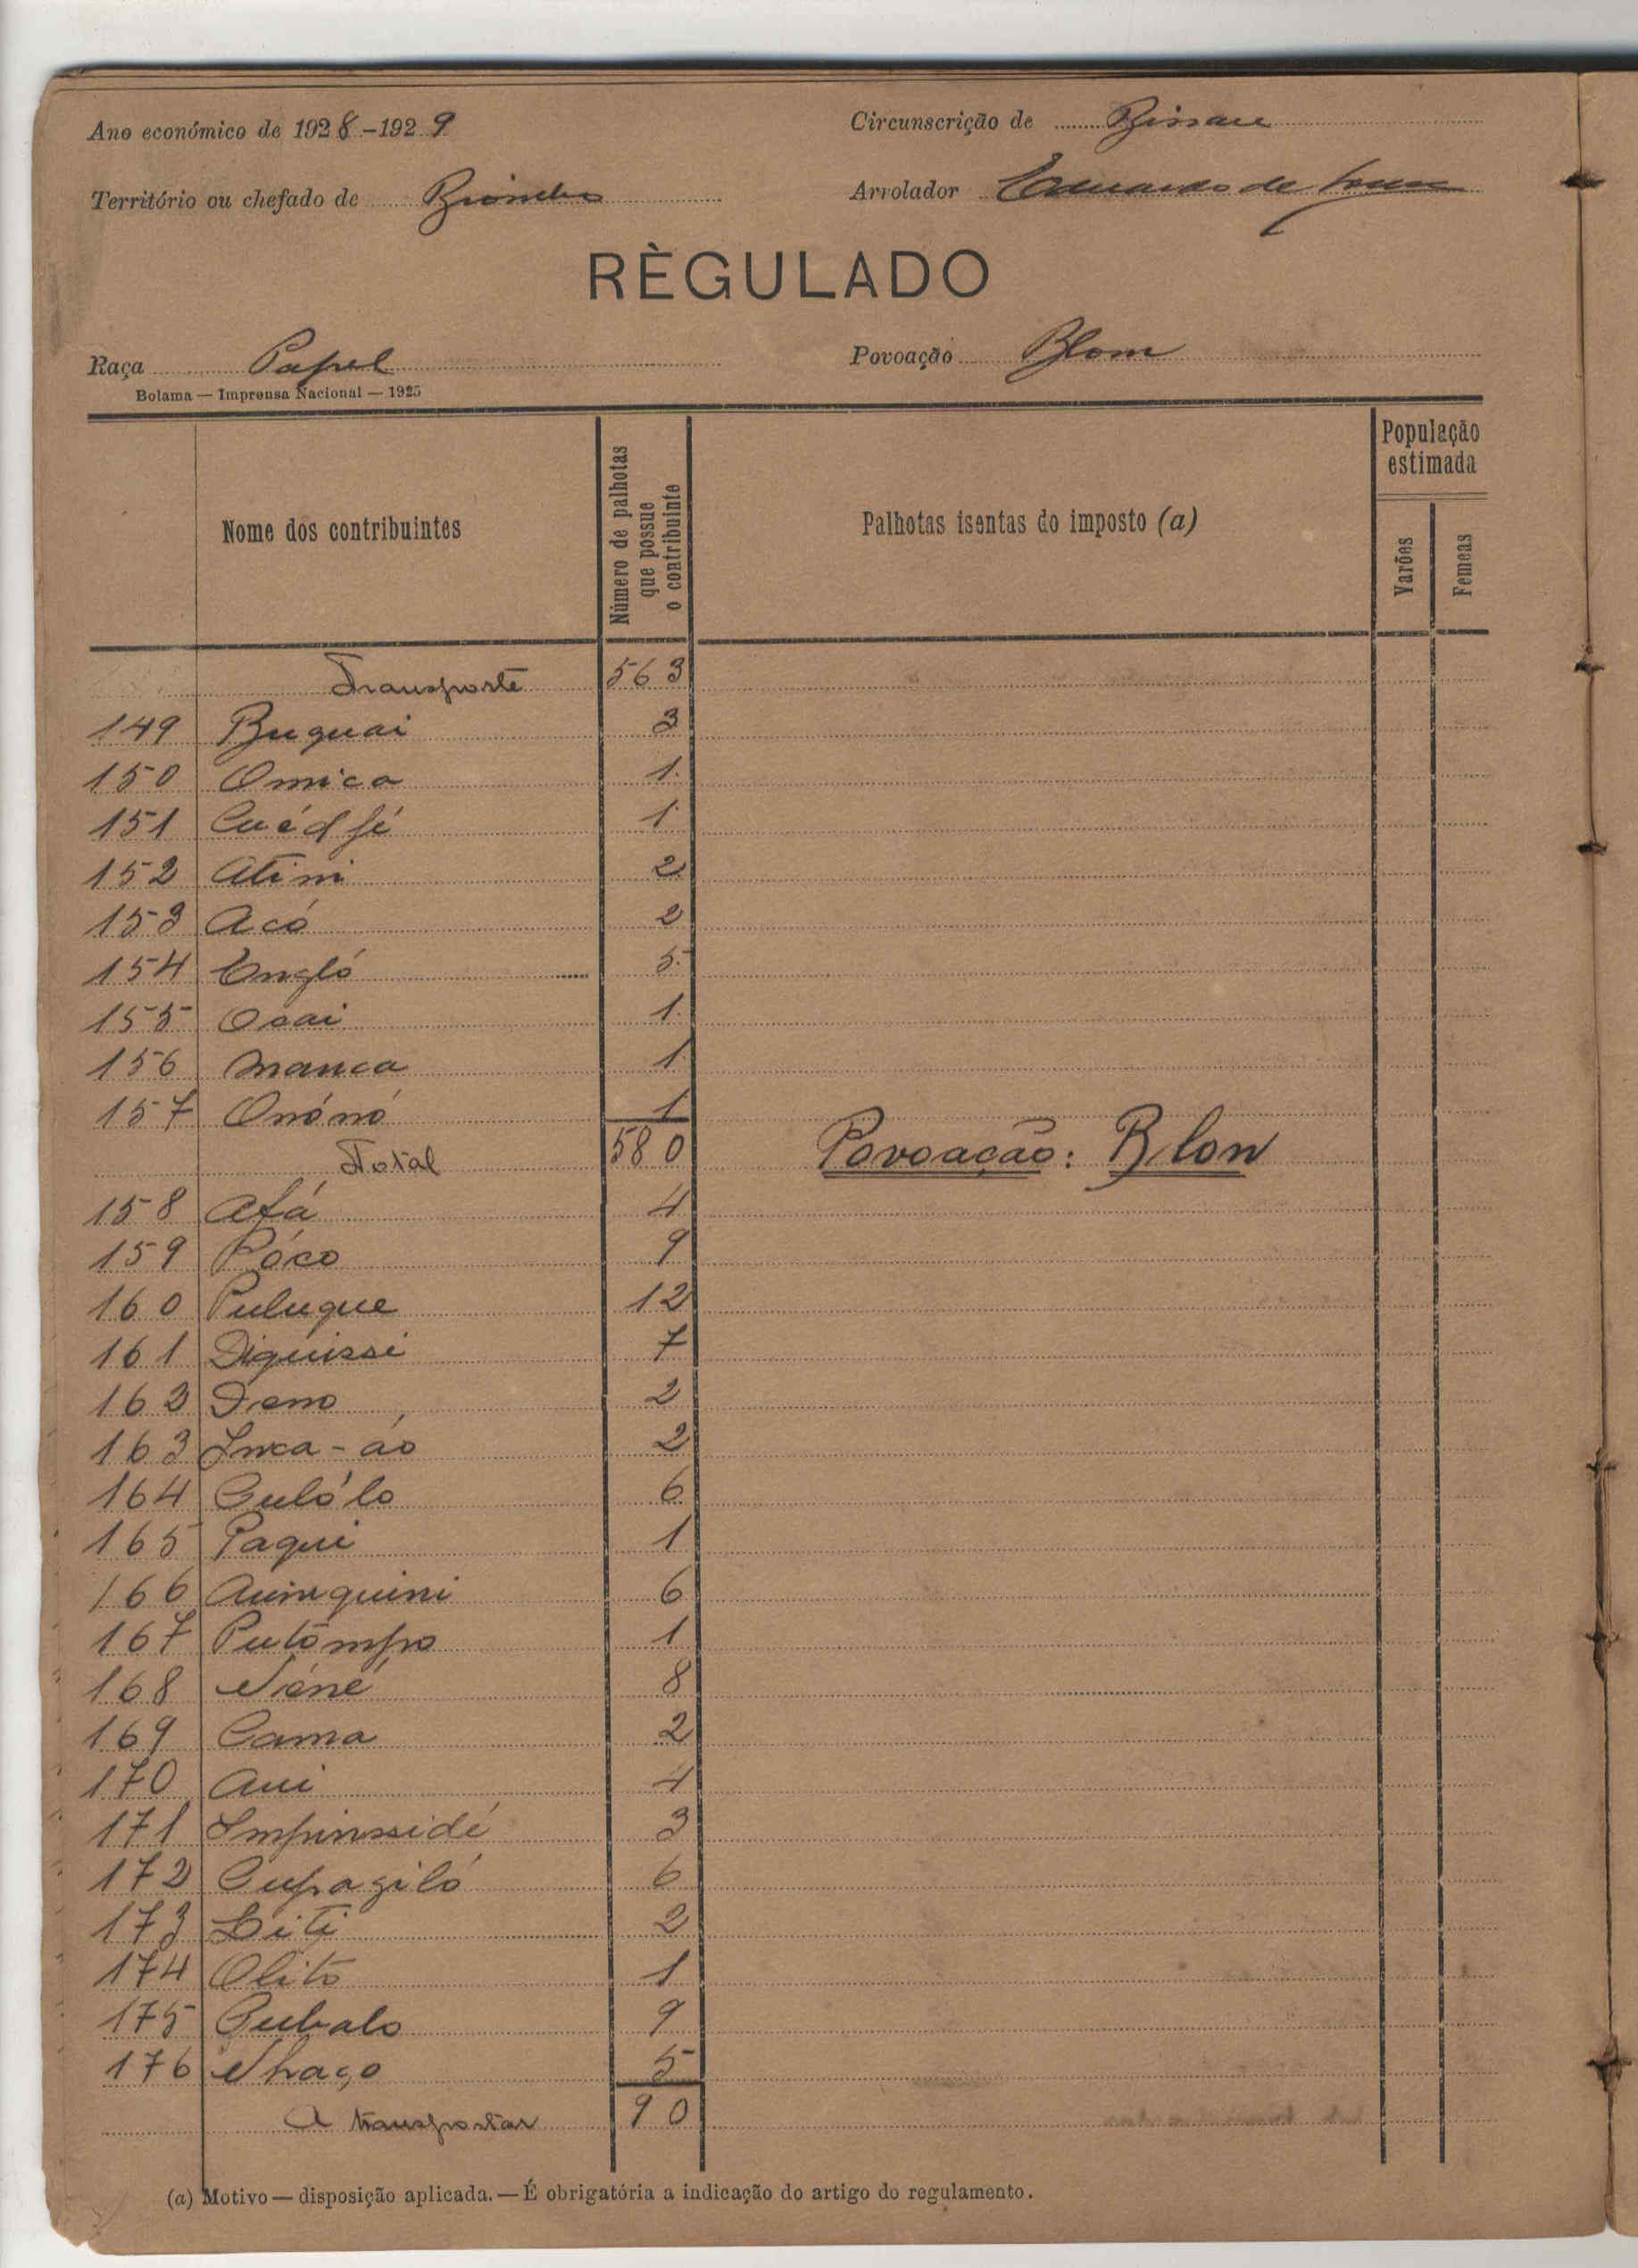 Ano económico de 1928-1929
Circunscrição de Bissau
Território ou chefado de Biombo
Arrolador Eduardo de
RÈGULADO
Raça Papel
Povoação Blom
Bolama — Imprensa Nacional — 1925
Nome dos contribuintes
Número de palhotas que possue o contribuinte
Palhotas isentas do imposto (a)
População estimada
Varões
Femeas
Transporte 563
149 Buguai 3
150 Omica 1
151 1
152 Atini 2
153 Acó 2
154 Engló 5
155 Ocai 1
156 Manca 1
157 Onónó 1
Total 580 Povoação: Blon
158 Afá 4
159 Póco 9
160 Puluque 12
161 Diquissi 7
162 2
163 Inca-áo 2
164 Culólo 6
165 Paqui 1
166 6
167 Putompo 1
168 Néné 8
169 Cama 2
170 Aui 4
171 Impinssidé 3
172 Cupagiló 6
173 Biti 2
174 Olito 1
175 Cubalo 9
176 Nhaço 5
A transportar 90
(a) Motivo — disposição aplicada. — É obrigatória a indicação do artigo do regulamento.